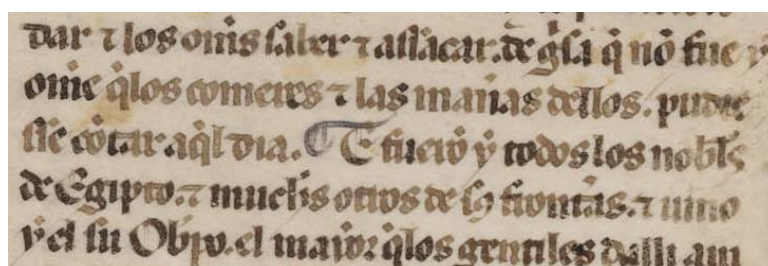 dar ⁊ los om̃s saber ⁊ assacar. de g̃sa q̃ nõ fue y
om̃e q̃los comeres ⁊ las mañas dellos. pudie
sse cõtar aq̃l dia. E fuerõ y todos los nobl̃s
de Egipto. ⁊ much̃s otros de sꝯ front̃as. ⁊ uino
y el su Obp̃o. el mayor q̃los gentiles dalli aui